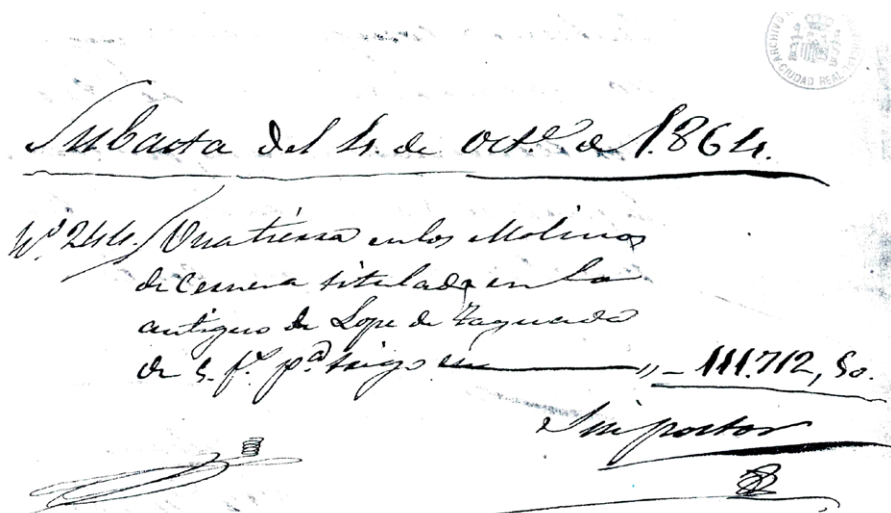 ARCHIVO
CIUDAD REAL
Subasta del 4. de Oct.e de 1.864.
Nº 244. / Una tierra en los Molinos
de titulada en lo
antiguo de Lope de
de S. f.s pª trigo en " - 111.712, 50.
Sin postor